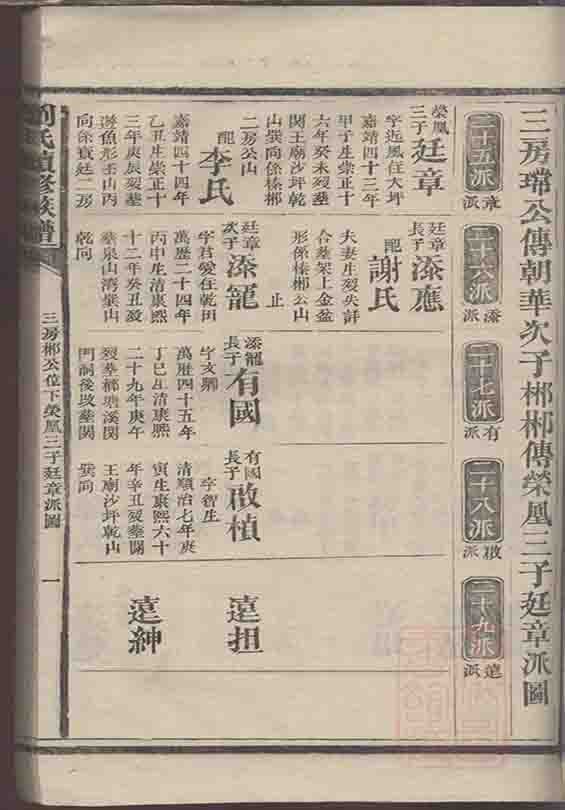 三房瑺公傳朝華次子郴郴傳榮鳳三子廷章派圖
二十五派
章派
二十六派
添派
二十七派
有派
二十八派
啟派
二十九派
遠派
榮鳳三子廷章
字近風住大坪
嘉靖四十三年
甲子生崇正十
六年癸未歿墓
関王廟沙坪乾
山巽向係榛郴
二房公山
配李氏
嘉靖四十四年
乙丑生崇正十
三年庚辰歿墓
遊魚形壬山丙
向係貢廷二房
廷章長子添應
配謝氏
夫妻生歿失詳
合墓架上金盆
形係榛郴公山
止
廷章次子添龍
字君愛住乾田
萬歷二十四年
丙申生清康熙
十二年癸丑歿
墓泉山湾巽山
乾向
添龍長子有國
字玄卿
萬歷四十五年
丁巳生清康熙
二十九年庚午
歿墓櫛塘溪関
門洞後改墓関
有國長子啟楨
字智生
清順治七年庚
寅生康熙六十
年辛丑歿墓関
王廟沙坪乾山
巽向
遠担
遠紳
劉氏續修族譜
三房郴公位下榮鳳三子廷章派圖
一